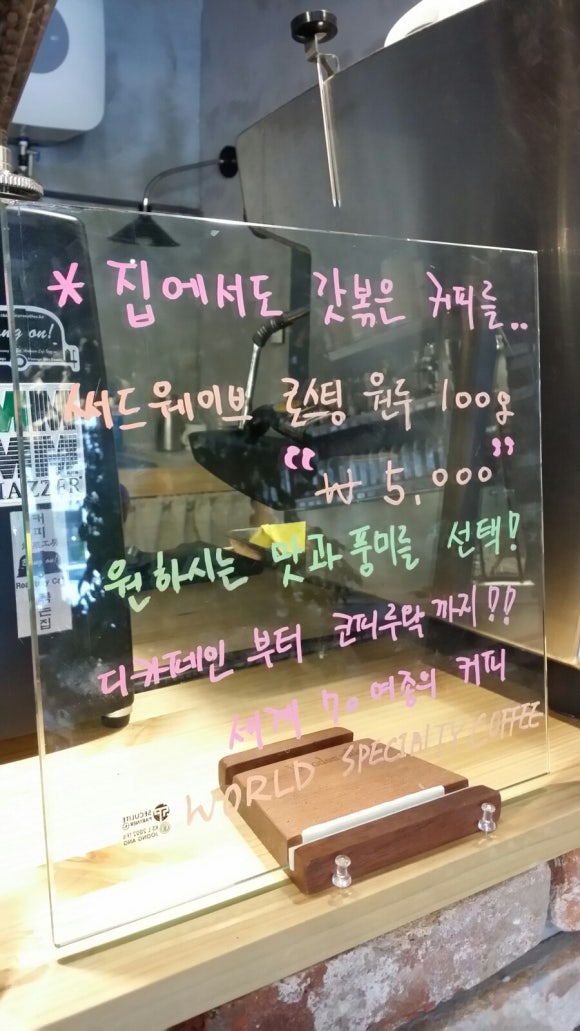 * 집에서도 갓볶은 커피를..
써드웨이브 로스팅 원두 100g
“₩ 5,000”
원하시는 맛과 풍미를 선택!
디카페인 부터 코피루왁 까지!!
세계 70여종의 커피
WORLD SPECIALTY COFFEE
ng on!
MAZZER
커
피
볶
는
집
SECULITE
PARTNER
JOONG ANG